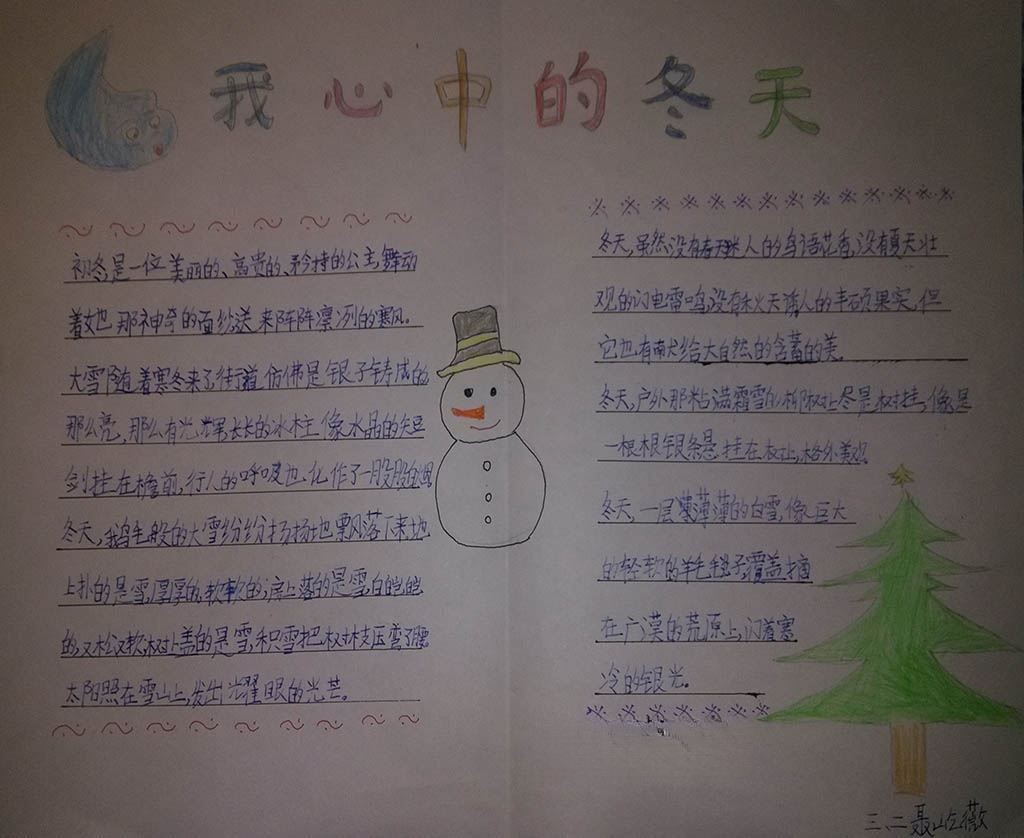 我心中的冬天
初冬,是一位美丽的、高贵的、矜持的公主,舞动
着她那神奇的面纱送来阵阵凛冽的寒风。
大雪随着寒冬来了街道仿佛是银子铸成的
那么亮,那么有光,长长的冰柱像水晶的短
剑挂在檐前,行人的呼吸也化作了一股股白烟
冬天,鹅毛般的大雪纷纷扬扬地飘落下来地
上扑的是雪,厚厚的,软软的,房上落的是雪,白皑皑
的,又松又软,树上盖的是雪,积雪把树枝压弯了腰
太阳照在雪山上,发出光耀眼的光芒。
冬天,虽然没有春天迷人的鸟语花香,没有夏天壮
观的闪电雷鸣,没有秋天诱人的丰硕果实,但
它也有献给大自然的含蓄的美。
冬天,户外那粘满霜雪的柳树上尽是树挂,像是
一根根银条悬挂在树上,格外美观
冬天,一层薄薄薄的白雪,像巨大
的轻软的羊毛毯子,覆盖摘
在广漠的荒原上,闪着寒
冷的银光。
三、二聂屹薇